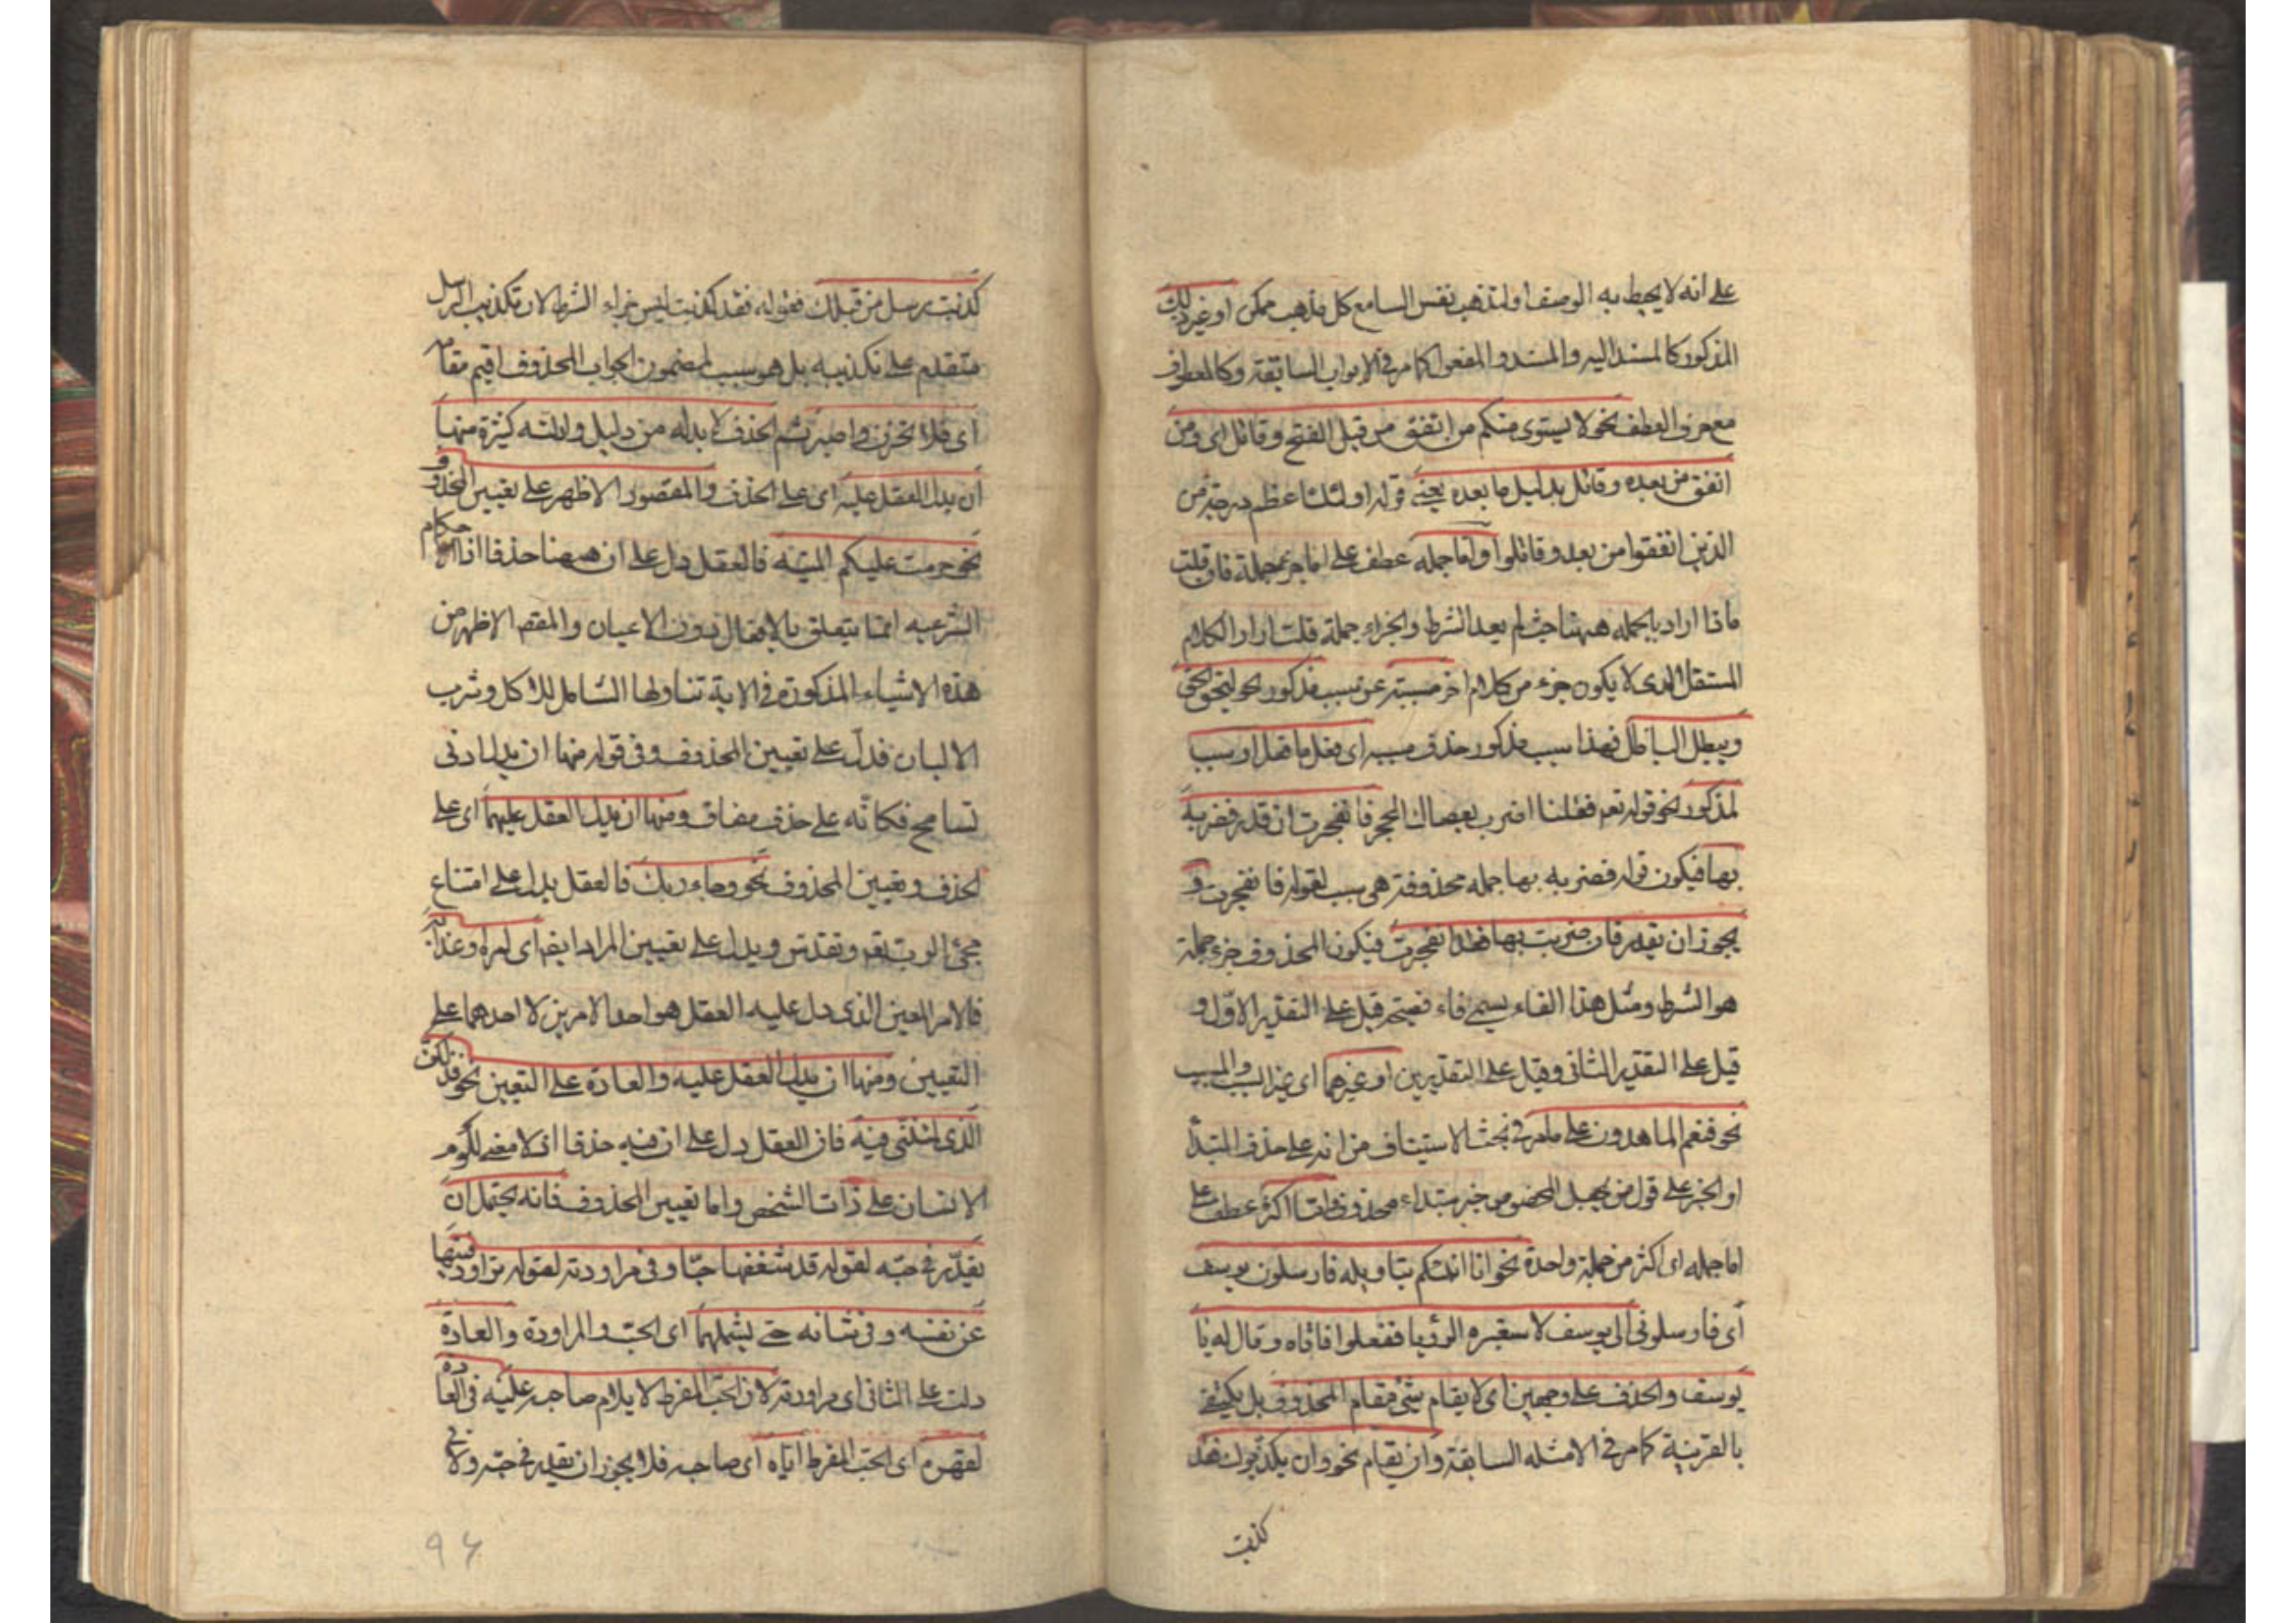 على انه لا يحيط به الوصف او لتذهب نفس السامع كل مذهب ممكن او غير ذلك
المذكور كالمسند اليه والمسند والمفعول كما مر في الابواب السابقة وكالمعطوف
مع حرف العطف نحو لا يستوى منكم من انفق من قبل الفتح وقاتل اى ومن
انفق من بعده وقاتل بدليل ما بعده يعنى قوله اولئك اعظم درجة من
الذين انفقوا من بعد وقاتلوا واما جمله عطف على اما جزء جملة فان قلت
ماذا اراد بالجمله ههنا حيث لم يعد الشرط والجزاء جملة قلت اراد الكلام
المستقل الذى لا يكون جزء من كلام اخر مسببة عن سبب مذكور نحو ليحق الحق
ويبطل الباطل فهذا سبب مذكور حذف مسببه اى فعل ما فعل او سبب
لمذكور نحو قوله تعم فقلنا اضرب بعصاك الحجر فانفجرت ان قدر فضربه
بها فيكون قوله فضربه بها جمله محذوفة هى سبب لقوله فانفجرت و
يجوز ان يقدر فان ضربت بها فقد انفجرت فيكون المحذوف جزء جملة
هو الشرط ومثل هذا الفاء يسمى فاء فصيحة قيل على التقدير الاول و
قيل على التقدير الثانى وقيل على التقديرين او غيرهما اى غير السبب والمسبب
نحو فنعم الماهدون على ما مر في بحث الاستيناف من انه على حذف المبتدأ
او الخبر على قول من يجعل المخصوص خبر مبتداء محذوف واما اكثر عطف على
اما جمله اى اكثر من جملة واحدة نحو انا انبئكم بتاويله فارسلون يوسف
اى فارسلونى الى يوسف لاستعبره الرؤيا ففعلوا فاتاه وقال له يا
يوسف والحذف على وجهين اى لا يقام شئ مقام المحذوف بل يكتفى
بالقرينة كما مر في الامثله السابقة وان يقام نحو وان يكذبوك فقد
كذبت
كذبت رسل من قبلك فقوله فقد كذبت ليس جزاء الشرط لان تكذيب الرسل
متقدم على تكذيبه بل هو سبب لمضمون الجواب المحذوف اقيم مقامه
اى فلا تحزن واصبر ثم الحذف لا بد له من دليل وادلته كثيرة منها
ان يدل العقل عليه اى على الحذف والمقصود الاظهر على تعيين المحذوف
نحو حرمت عليكم الميته فالعقل دل على ان ههنا حذفا اذ الاحكام
الشرعيه انما يتعلق بالافعال دون الاعيان والمقصد الاظهر من
هذه الاشياء المذكورة في الاية تناولها الشامل للاكل وشرب
الالبان فدل على تعيين المحذوف وفى قوله منها ان يدل ادنى
تسامح فكانه على حذف مضاف ومنها ان يدل العقل عليهما اى على
الحذف وتعيين المحذوف نحو وجاء ربك فالعقل يدل على امتناع
مجئ الرب تعم وتقدس ويدل على تعيين المراد ايضا اى امره وعذابه
فالامر المعين الذى دل عليه العقل هو احد الامرين لا احدهما على
التعيين ومنها ان يدل العقل عليه والعادة على التعيين نحو فذلكن
الذى لمتننى فيه فان العقل دل على ان فيه حذفا اذ لا معنى للوم
الانسان على ذات الشخص واما تعيين المحذوف فانه يحتمل ان
يقدر في حبه لقوله قد شغفها حبا وفى مراودته لقوله تراود فتيها
عن نفسه وفى شانه حتى يشملهما اى الحب والمراودة والعادة
دلت على الثانى اى مراودته لان الحب المفرط لا يلام صاحبه عليه في العادة
لقهره اى الحب المفرط اياه اى صاحبه فلا يجوز ان يقدر في حبه ولا في